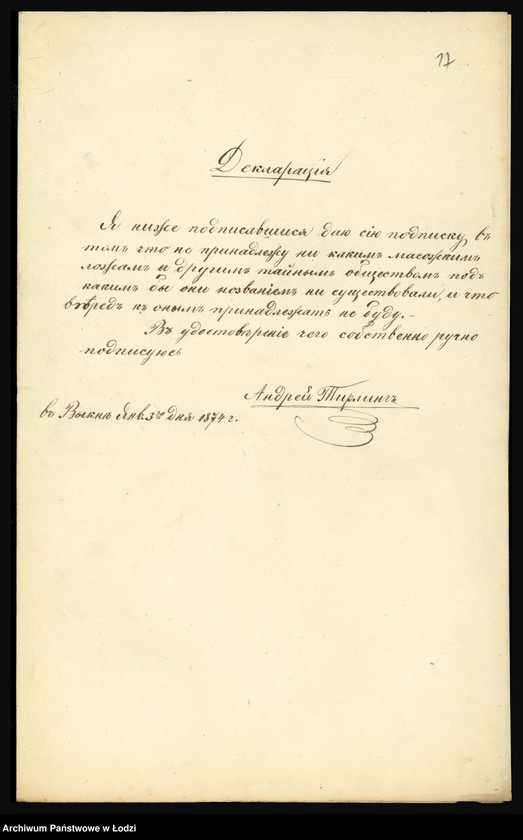 17
Декларація
Я ниже подписавшися даю сію подписку, въ
томъ что не принадлежу ни какимъ масоскимъ
ложамъ и другимъ тайнымъ обществомъ подъ
какимъ бы они названіемъ ни существовали, и что
впредъ къ онымъ принадлежать не буду.-
Въ удостовѣреніе чего собственно ручно
подписуюсь
Андрей Тирлингъ
въ Янв. 3го дня 1874 г.
Archiwum Państwowe w Łodzi